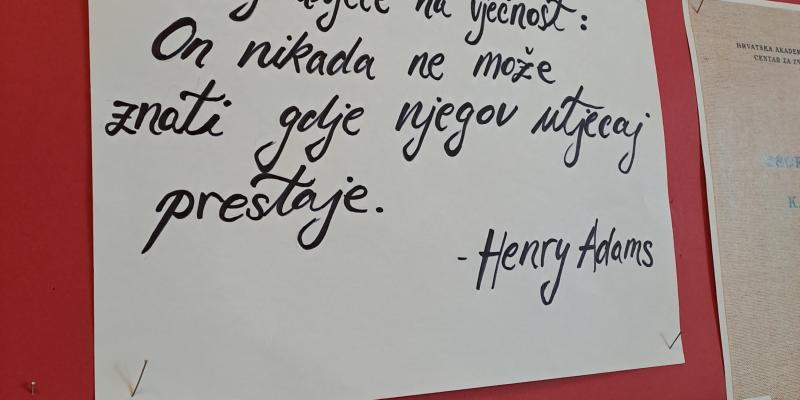 na vječnost:
On nikada ne može
znati gdje njegov utjecaj
prestaje.
- Henry Adams
HRVATSKA
CENTAR ZA